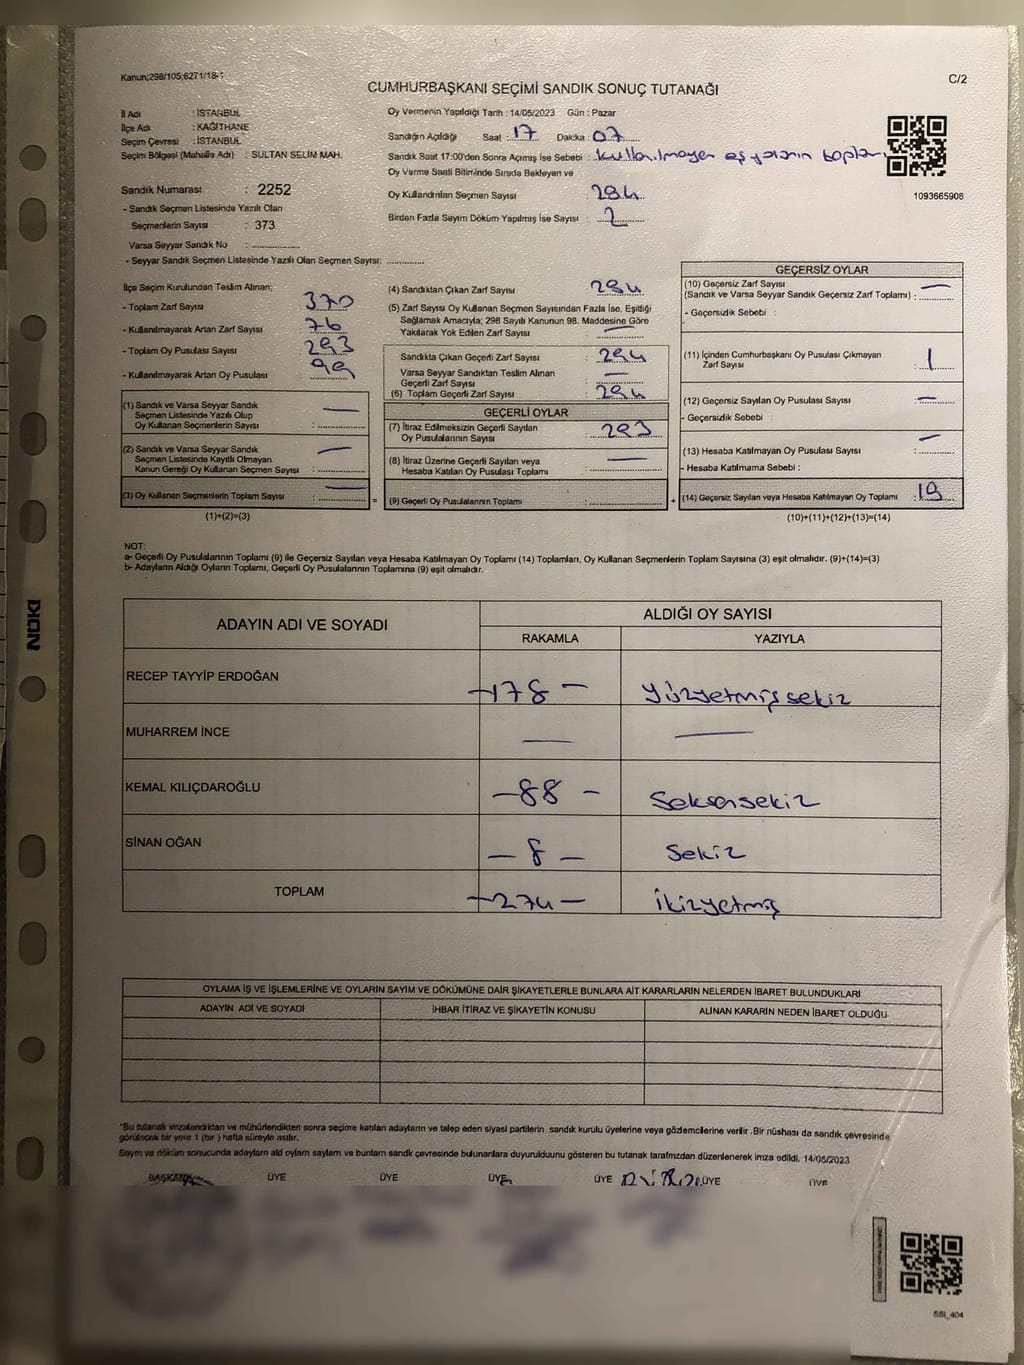 Kanun;298/105;6271/18-1
C/2
CUMHURBAŞKANI SEÇİMİ SANDIK SONUÇ TUTANAĞI
İl Adı : İSTANBUL
İlçe Adı : KAĞITHANE
Seçim Çevresi : İSTANBUL
Seçim Bölgesi (Mahalle Adı) : SULTAN SELİM MAH.
Sandık Numarası : 2252
- Sandık Seçmen Listesinde Yazılı Olan
Seçmenlerin Sayısı : 373
Varsa Seyyar Sandık No :
- Seyyar Sandık Seçmen Listesinde Yazılı Olan Seçmen Sayısı:
Oy Vermenin Yapıldığı Tarih : 14/05/2023 Gün : Pazar
Sandığın Açıldığı Saat : 17 Dakika : 07
Sandık Saat 17:00'den Sonra Açılmış İse Sebebi : kullanılmayan eşyaların toplan
Oy Verme Saati Bitiminde Sırada Bekleyen ve
Oy Kullandırılan Seçmen Sayısı : 294
Birden Fazla Sayım Döküm Yapılmış İse Sayısı : 2
1093665906
İlçe Seçim Kurulundan Teslim Alınan;
- Toplam Zarf Sayısı : 370
- Kullanılmayarak Artan Zarf Sayısı : 76
- Toplam Oy Pusulası Sayısı : 293
- Kullanılmayarak Artan Oy Pusulası : 99
(1) Sandık ve Varsa Seyyar Sandık
Seçmen Listesinde Yazılı Olup
Oy Kullanan Seçmenlerin Sayısı : —
(2) Sandık ve Varsa Seyyar Sandık
Seçmen Listesinde Kayıtlı Olmayan
Kanun Gereği Oy Kullanan Seçmen Sayısı : —
(3) Oy Kullanan Seçmenlerin Toplam Sayısı : —
(1)+(2)=(3)
(4) Sandıktan Çıkan Zarf Sayısı : 294
(5) Zarf Sayısı Oy Kullanan Seçmen Sayısından Fazla İse, Eşitliği
Sağlamak Amacıyla; 298 Sayılı Kanunun 98. Maddesine Göre
Yakılarak Yok Edilen Zarf Sayısı : —
Sandıkta Çıkan Geçerli Zarf Sayısı : 294
Varsa Seyyar Sandıktan Teslim Alınan
Geçerli Zarf Sayısı : —
(6) Toplam Geçerli Zarf Sayısı : 294
GEÇERLİ OYLAR
(7) İtiraz Edilmeksizin Geçerli Sayılan
Oy Pusulalarının Sayısı : 293
(8) İtiraz Üzerine Geçerli Sayılan veya
Hesaba Katılan Oy Pusulası Toplamı : —
= (9) Geçerli Oy Pusulalarının Toplamı : +
GEÇERSİZ OYLAR
(10) Geçersiz Zarf Sayısı
(Sandık ve Varsa Seyyar Sandık Geçersiz Zarf Toplamı) : —
- Geçersizlik Sebebi :
(11) İçinden Cumhurbaşkanı Oy Pusulası Çıkmayan
Zarf Sayısı : 1
(12) Geçersiz Sayılan Oy Pusulası Sayısı : —
- Geçersizlik Sebebi :
(13) Hesaba Katılmayan Oy Pusulası Sayısı : —
- Hesaba Katılmama Sebebi :
(14) Geçersiz Sayılan veya Hesaba Katılmayan Oy Toplamı : 19
(10)+(11)+(12)+(13)=(14)
NOT:
a- Geçerli Oy Pusulalarının Toplamı (9) ile Geçersiz Sayılan veya Hesaba Katılmayan Oy Toplamı (14) Toplamları, Oy Kullanan Seçmenlerin Toplam Sayısına (3) eşit olmalıdır. (9)+(14)=(3)
b- Adayların Aldığı Oyların Toplamı, Geçerli Oy Pusulalarının Toplamına (9) eşit olmalıdır.
ADAYIN ADI VE SOYADI
ALDIĞI OY SAYISI
RAKAMLA YAZIYLA
RECEP TAYYİP ERDOĞAN -178- Yüzyetmişsekiz
MUHARREM İNCE — —
KEMAL KILIÇDAROĞLU -88- Seksensekiz
SİNAN OĞAN -8- Sekiz
TOPLAM -274- İkizyetmiş
OYLAMA İŞ VE İŞLEMLERİNE VE OYLARIN SAYIM VE DÖKÜMÜNE DAİR ŞİKAYETLERLE BUNLARA AİT KARARLARIN NELERDEN İBARET BULUNDUKLARI
ADAYIN ADI VE SOYADI İHBAR İTİRAZ VE ŞİKAYETİN KONUSU ALINAN KARARIN NEDEN İBARET OLDUĞU
*Bu tutanak imzalandıktan ve mühürlendikten sonra seçime katılan adayların ve talep eden siyasi partilerin sandık kurulu üyelerine veya gözlemcilerine verilir. Bir nüshası da sandık çevresinde
görülecek bir yere 1 (bir) hafta süreyle asılır.
Sayım ve döküm sonucunda adayların aldığı oyların sayıları ve bunların sandık çevresinde bulunanlara duyurulduğunu gösteren bu tutanak tarafımızdan düzenlenerek imza edildi. 14/05/2023
BAŞKAN ÜYE ÜYE ÜYE ÜYE ÜYE ÜYE
SSI_404